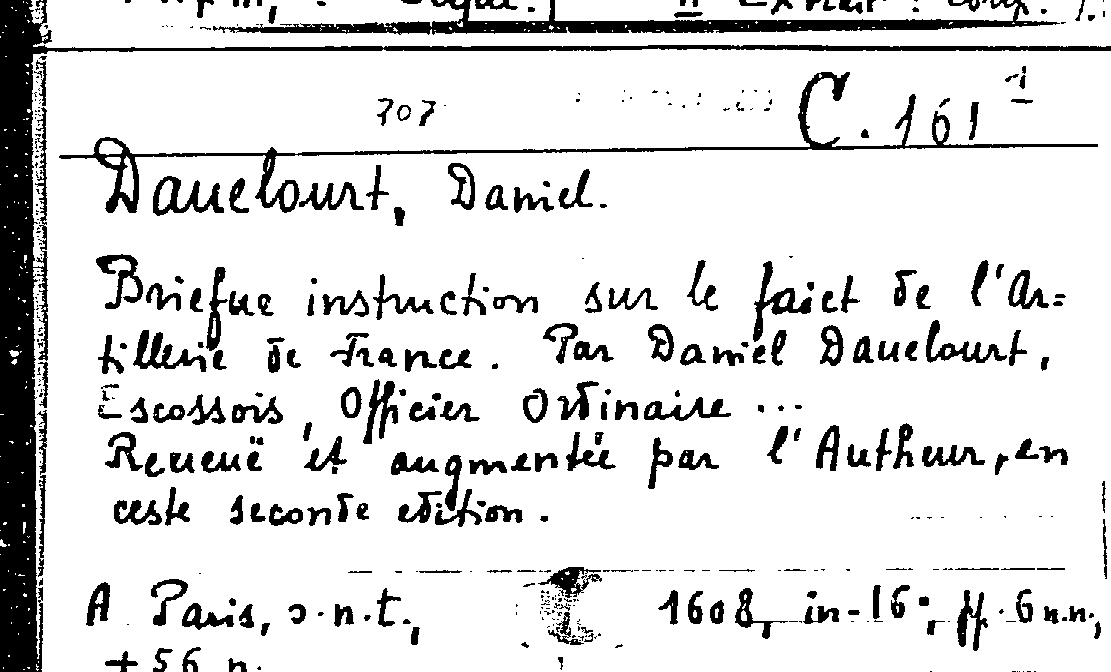 707 C. 161 1
Dauelourt, Daniel.
Briefue instruction sur le faict de l'Ar=
tillerie de France. Par Daniel Dauelourt,
Escossois, Officier Ordinaire ...
Reueuë et augmentée par l'Autheur, en
ceste seconde edition.
A Paris, s.n.t., 1608, in-16°, ff. 6 n.n.,
+ 56 n.